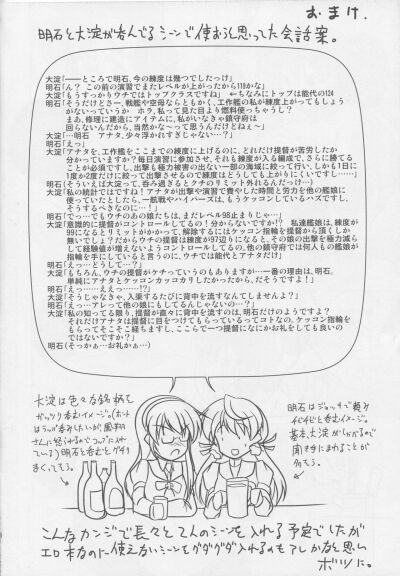 おまけ.
明石と大淀が呑んでるシーンで使おうと思ってた会話案。
大淀「――ところで明石、今の練度は幾つでしたっけ」
明石「ん？ この前の演習でまたレベルが上がったから118かな」
大淀「もうすっかりウチではトップクラスですね」 ←ちなみにトップは能代の124
明石「そうだけどさー、戦艦や空母ならともかく、工作艦の私が練度上がってもしょうがないっていうか ホラ、私って見た目より燃料使っちゃうし？
まあ、修理に建造にアイテムに、私がいなきゃ鎮守府は
回らないんだから、当然かなって思うんだけどねぇ～」
大淀「…明石 アナタ、少々浮かれすぎじゃない…？」
明石「えっ」
大淀「アナタを、工作艦をここまでの練度に上げるのに、どれだけ提督が苦労したか
分かっていますか？毎日演習に参加させ、それも練度が入る編成で、さらに勝てる
ことが必須ですし、出撃も極力被害の出ない一部の海域に絞って行い、しかも1日に
1度か2度だけに絞って出撃させるので練度はどうしても上がりにくいですし……」
明石（そういえば大淀って、呑み過ぎるとウチのリミット外れるんだっけ…）
大淀「私の統計ではですね！アナタが出撃や演習で費やした時間と労力を他の艦娘に
使っていたとしたら、一航戦やハイパーズは、もうケッコンしているハズですし、
そうするべきなのに…！」
明石「でっ…でもウチのあの娘たちは、まだレベル98止まりじゃ…」
大淀「意識的に提督がコントロールしてるの！分からないですか!? 私達艦娘は、練度が
99になるとリミットがかかって、解除するにはケッコン指輪を提督から頂くしか
無いでしょ？だからウチ提督は練度が97辺りになると、その娘の出撃を極力減ら
して経験値が増えないようコントロールしてるの、他の鎮守府では何人もの艦娘が
指輪を手にしていると言うのに、ウチでは能代とアナタだけ」
明石「えっ…どうして…？」
大淀「もちろん、ウチの提督がケチっていうのもありますが…一番の理由は、明石、
単純にアナタとケッコンカッコカリしたかったから、だそうですよ！」
明石「えっ……ええっ……!!?」
大淀「そうじゃなきゃ、入渠するたびに背中を流すなんてしませんよ？」
明石「えっ…アレって他の娘にもしてるんじゃないの…？」
大淀「私の知ってる限り、提督が直々に背中を流すのは、明石だけのようですよ？
それだけアナタは提督に目をつけてもらっているってコトなの、ケッコン指輪を
もらってそこそこ経ちますし、ここらで一つ提督になにかお礼をしても良いの
ではないですか？」
明石（そっかぁ…お礼かぁ…）
大淀は色々な銘柄を
ガッツリ呑むイメージ。（ホントは
さんに怒られるのでコップに入れ
ている）明石と呑むと グチり
まくってそう。
明石はジョッキで頼み
チビチビと呑むイメージ。
基本、大淀がしゃべるので
聞き手にまわることが
多そう。
こんなカンジで長々と2人のシーンを入れる予定でしたが
エロ本なのに使えないシーンをグダグダ入れるのもアレかなと思い
ボツに。